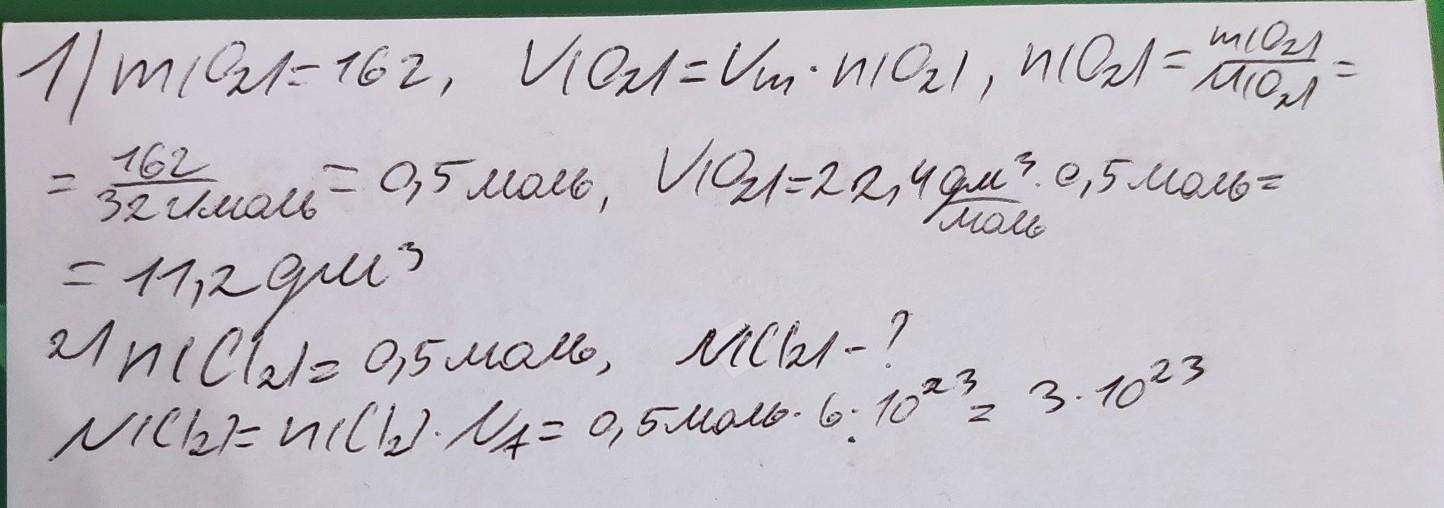 1) m(O₂)=16г, V(O₂)=Vm·n(O₂), n(O₂)=m(O₂)/M(O₂)=
=16г/32г/моль=0,5моль, V(O₂)=22,4дм³/моль·0,5моль=
=11,2дм³
2) n(Cl₂)=0,5моль, N(Cl₂)-?
N(Cl₂)=n(Cl₂)·N_A=0,5моль·6·10²³=3·10²³